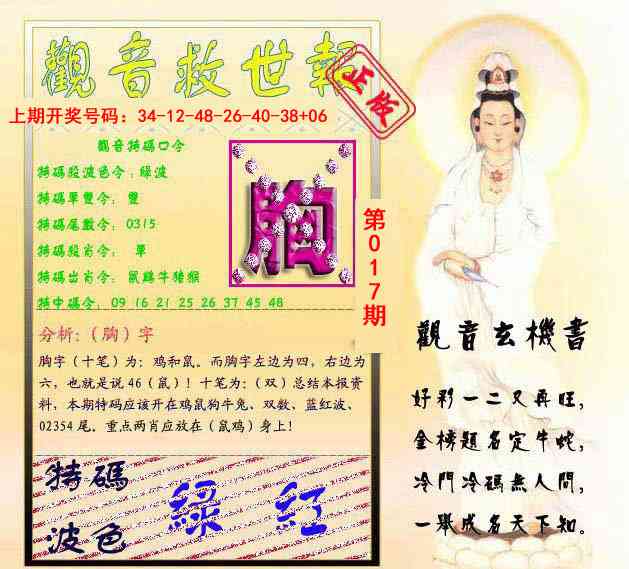 觀音救世報
正版
上期开奖号码：34-12-48-26-40-38+06
觀音特碼口令
特碼段波色令：綠波
特碼單雙令： 雙
特碼尾數令： 0315
特碼段肖令： 單
特碼出肖令： 鼠鷄牛猪猴
特中碼令： 09 16 21 25 26 37 45 48
胸
第017期
分析：（胸）字
胸字（十笔）为：鸡和鼠。而胸字左边为四，右边为
六，也就是说 46（鼠）！十笔为：（双）总结本报资
料，本期特码应该开在鸡鼠狗牛兔、双数、蓝红波、
02354 尾。重点两肖应放在（鼠鸡）身上！
特碼
波色
綠 紅
觀音玄機書
好彩一二又再旺，
金榜題名定牛蛇，
冷門冷碼無人問，
一舉成名天下知。